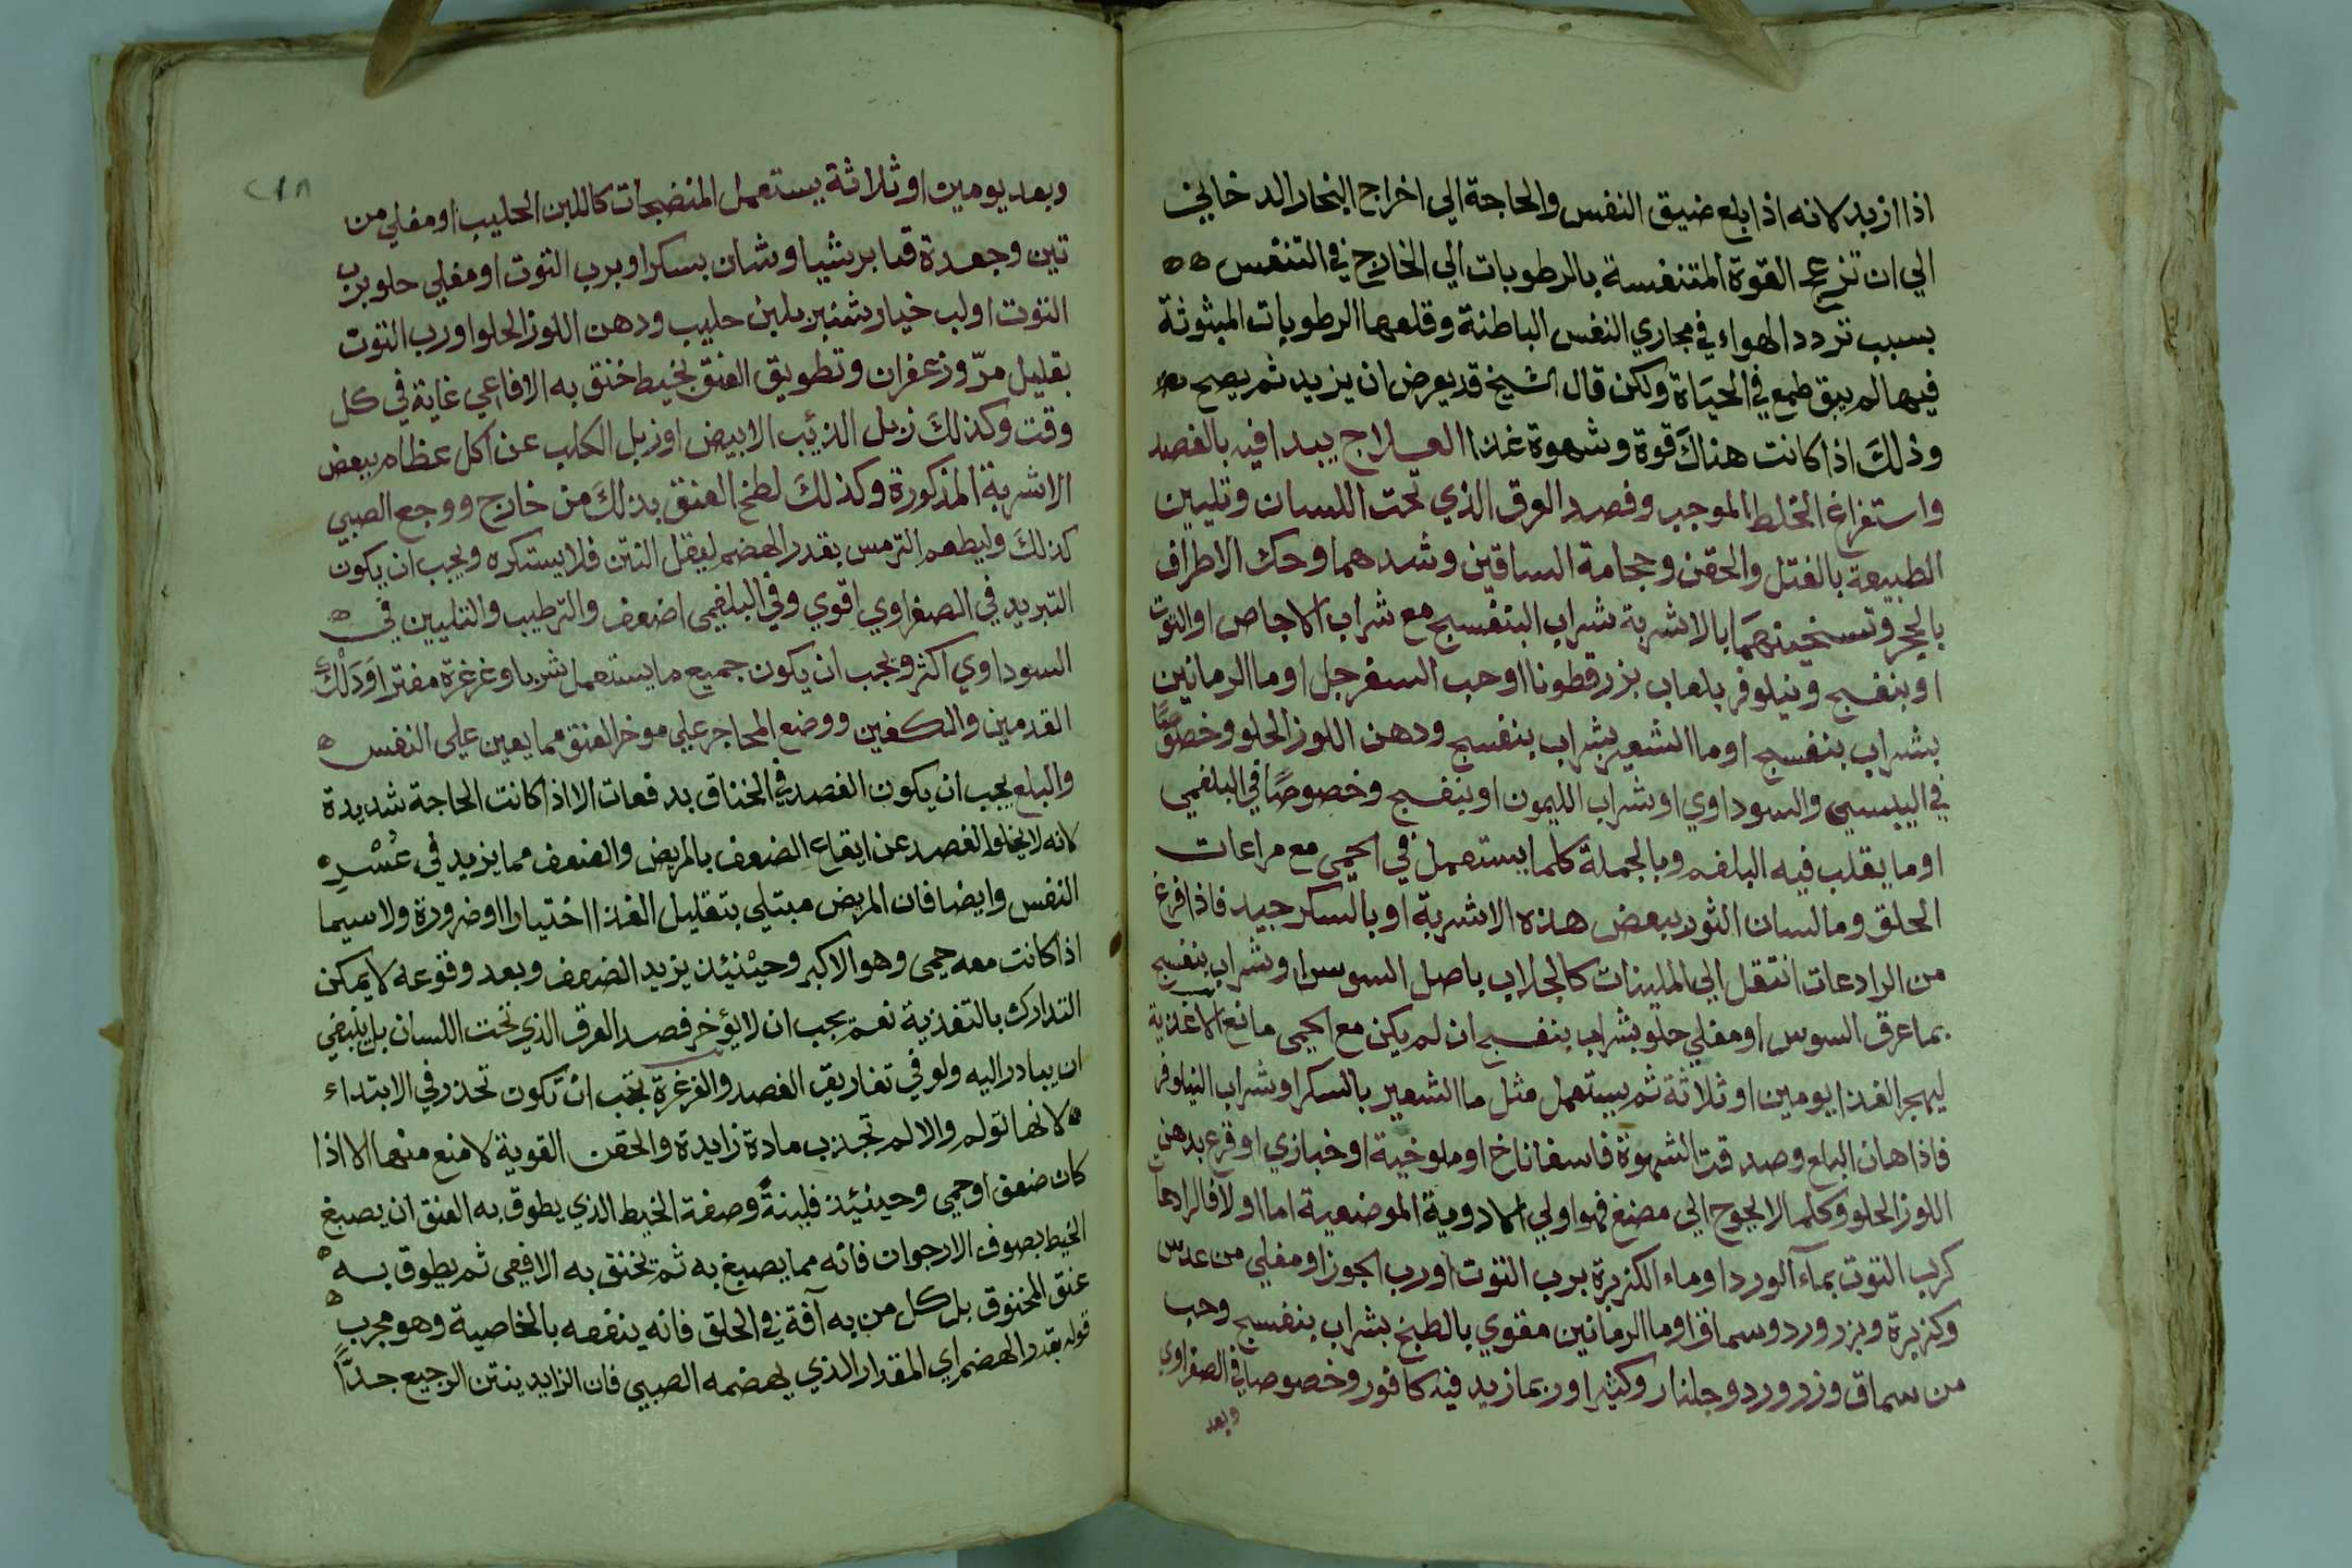 اذا ازبد لانه اذا بلع ضيق النفس والحاجة الي اخراج البخار الدخاني
الي ان تزعج القوة المتنفسة بالرطوبات الي الخارج في التنفس
بسبب تردد الهواء في مجاري النفس الباطنة وقلعها الرطوبات المبثوثة
فيها لم يبق طمع في الحياة ولكن قال الشيخ قد يعرض ان يزيد ثم يصح
وذلك اذا كانت هناك قوة وشهوة غذا العلاج يبدا فيه بالفصد
واستفراغ الخلط الموجب وفصد العرق الذي تحت اللسان وتليين
الطبيعة بالفتل والحقن وحجامة الساقين وشدهما وحك الاطراف
بالحجر وتسخينهما بالاشربة شراب البنفسج مع شراب الاجاص او التوت
او بنفسج ونيلوفر بلعاب بزر قطونا او حب السفرجل او ما الرمانين
بشراب بنفسج او ما الشعير بشراب بنفسج ودهن اللوز الحلو وخصوصًا
في اليبسي والسوداوي او شراب الليمون او بنفسج وخصوصًا في البلغمي
او ما يقلب فيه البلغم وبالجملة كلما يستعمل في الحمي مع مراعات
الحلق وما لسان الثور ببعض هذه الاشربة او بالسكر جيد فاذا فرغ
من الرادعات انتقل الي الملينات كالجلاب باصل السوس او شراب بنفسج
بما عرق السوس او مغلي حلو بشراب بنفسج ان لم يكن مع الحمي مانع الاغذية
ليهجر الغذا يومين او ثلاثة ثم يستعمل مثل ما الشعير بالسكر او شراب النيلوفر
فاذا هان البلع وصدقت الشهوة فاسفاناخ او ملوخية او خبازي او قرع بدهن
اللوز الحلو وكلما لا يحوج الي مضغ فهو اولي الادوية الموضعية اما اولا فالرادعات
كرب التوت بماء الورد او ماء الكزبرة برب التوت او رب الجوز او مغلي من عدس
وكزبرة وبزر ورد وسماق او ما الرمانين مقوي بالطبخ بشراب بنفسج وحب
من سماق وزر ورد وجلنار وكثيرا وربما زيد فيه كافور وخصوصا في الصفراوي
وبعد
٢١٨
وبعد يومين او ثلاثة يستعمل المنضجات كاللبن الحليب او مغلي من
تين وجعدة قنا برشياوشان بسكر او برب التوت او مغلي حلو برب
التوت او لب خيار شنبر بلبن حليب ودهن اللوز الحلو او رب التوت
بقليل مرّ وزعفران وتطويق العنق بخيط خنق به الافاعي غاية في كل
وقت وكذلك زبل الذئب الابيض او زبل الكلب عن اكل عظام ببعض
الاشربة المذكورة وكذلك لطخ العنق بذلك من خارج ووجع الصبي
كذلك وليطعم الترمس بقدر الهضم ليقل النتن فلا يستكره ويجب ان يكون
التبريد في الصفراوي اقوي وفي البلغمي اضعف والترطيب والتليين في
السوداوي اكثر ويجب ان يكون جميع ما يستعمل شربا وغرغرة مفترا وَدَلْك
القدمين والكفين ووضع المحاجر علي موخر العنق مما يعين علي النفس
والبلع يجب ان يكون الفصد في الخناق بدفعات الا اذا كانت الحاجة شديدة
لانه لا يخلو الفصد عن ايقاع الضعف بالمريض والضعف مما يزيد في عُسْر
النفس وايضا فان المريض مبتلي بتقليل الغذا اختيارا او ضرورة ولا سيما
اذا كانت معه حمي وهو الاكبر وحينئذ يزيد الضعف وبعد وقوعه لا يمكن
التدارك بالتغذية نعم يجب ان لا يؤخر فصد العرق الذي تحت اللسان بل ينبغي
ان يبادر اليه ولو في تفاريق الفصد والغرغرة يجب ان تكون تحذر في الابتداء
لانها تولم والالم تجذب مادة زايدة والحقن القوية لا منع منها الا اذا
كان ضعف او حمي وحينئذ فلينةً وصفة الخيط الذي يطوق به العنق ان يصبغ
الخيط بصوف الارجوان فانه مما يصبغ به ثم تخنق به الافعي ثم يطوق به
عنق المخنوق بل كل من به آفة في الحلق فانه ينفعه بالخاصية وهو مجرب
قوله بقدر الهضم اي المقدار الذي يهضمه الصبي فان الزايد ينتن الرجيع جدًّا